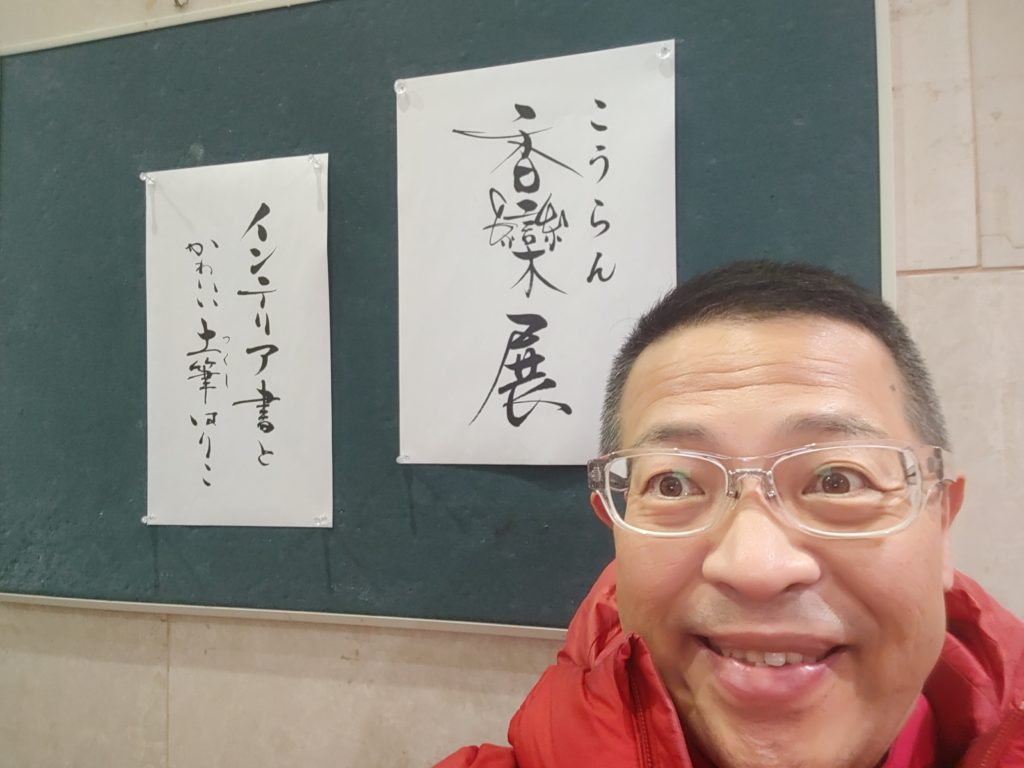 こうらん
香欒展
インテリア書と
つくし
かわいい土筆はりこ